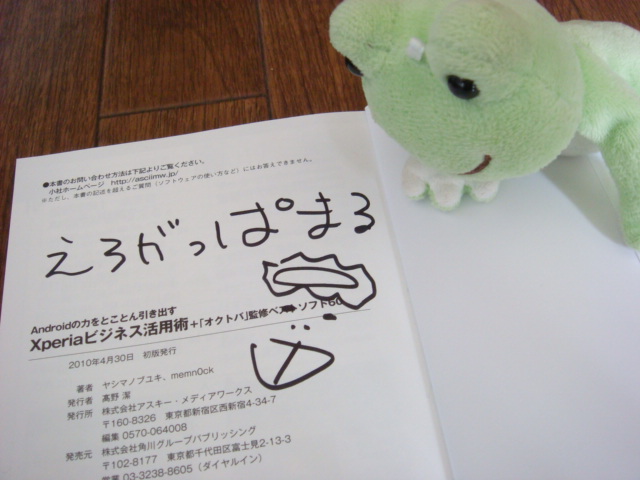 ●本書のお問い合わせ方法は下記よりご覧ください。
小社ホームページ http://asciimw.jp/
※ただし、本書の記述を超えるご質問(ソフトウェアの使い方など)にはお答えできません。
えろがっぱまる
Androidの力をとことん引き出す
Xperiaビジネス活用術+「オクトバ」監修ベストソフト60
2010年4月30日 初版発行
著者 ヤシマノブユキ、memn0ck
発行者 髙野 潔
発行所 株式会社アスキー・メディアワークス
〒160-8326 東京都新宿区西新宿4-34-7
編集 0570-064008
発売元 株式会社角川グループパブリッシング
〒102-8177 東京都千代田区富士見2-13-3
営業 03-3238-8605(ダイヤルイン)